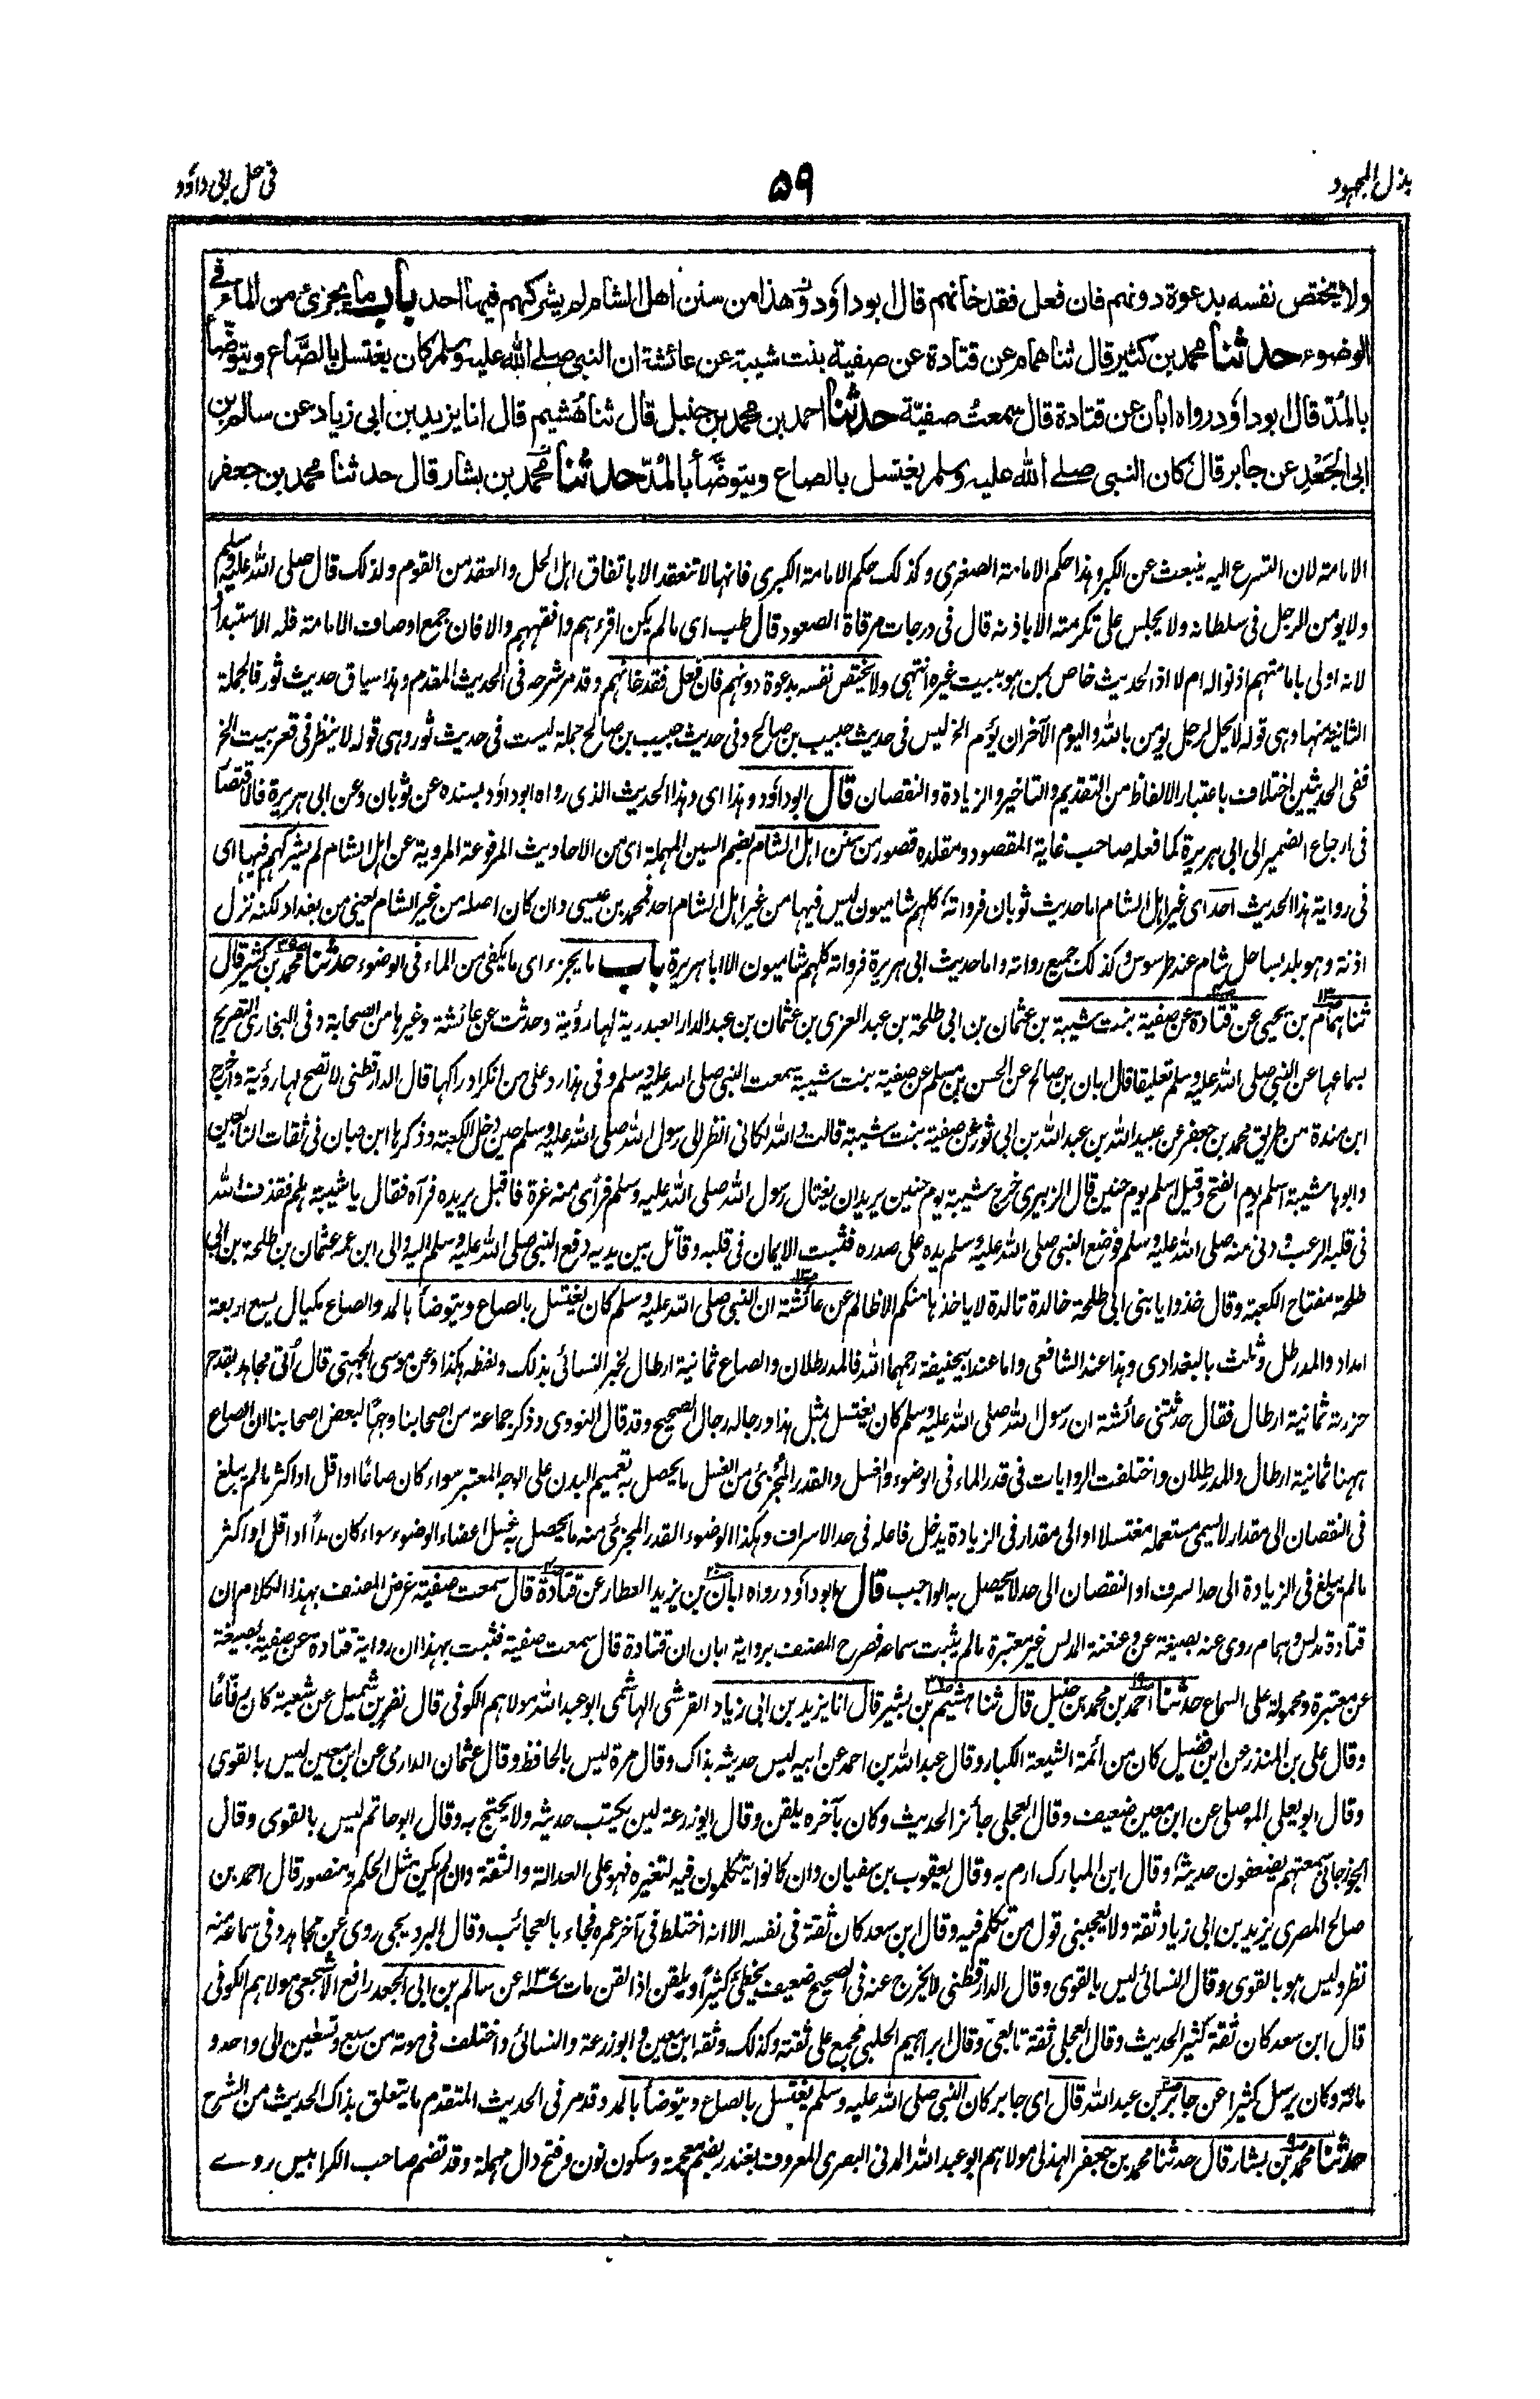 بذل المجهود
٥٩
فی حل ابی داؤد
ولا يختص نفسه بدعوة دونهم فان فعل فقد خانهم قال ابو داؤد وهذا من سنن اهل الشام لم يشركهم فيها احد باب ما يجزئ من الماء في
الوضوء حدثنا محمد بن كثير قال ثنا همام عن قتادة عن صفية بنت شيبة عن عائشة ان النبي صلے الله عليه وسلم كان يغتسل بالصَّاع ويتوضَّأ
بالمُدّ قال ابو داؤد رواه ابان عن قتادة قال سمعتُ صفيّة حدثنا احمد بن محمد بن حنبل قال ثنا هُشيم قال انا يزيد بن ابى زياد عن سالم بن
ابى الجَعْدِ عن جابر قال كان النبي صلے الله عليه وسلم يغتسل بالصاع ويتوضَّأ بالمُدّ حدثنا محمد بن بشار قال حدثنا محمد بن جعفر
الامامة لان التسرع اليه ينبعث عن الكبر وهذا حكم الامامة الصغرى وكذلك حكم الامامة الكبرى فانها لا تنعقد الا باتفاق اهل الحل والعقد من القوم ولذلك قال صلى الله عليه وسلم
ولا يومن الرجل فى سلطانه ولا يجلس على تكرمته الا باذنه قال فى درجات مرقاة الصعود قال طيب اى مالم يكن اقرءهم وافقههم والا فان جمع اوصاف الامامة فله الاستبدأ
لانه اولى بامامتهم اذنوا له ام لا اذ الحديث خاص بمن هو ببيت غيره انتهى ولا يختص نفسه بدعوة دونهم فان فعل فقد خانهم وقد مر شرحه فى الحديث المقدم وهذا سياق حديث ثور فالجملة
الثانية منها وهى قوله لا يحل لرجل يومن بالله واليوم الآخر ان يؤم الخ ليس فى حديث حبيب بن صالح وفى حديث حبيب بن صالح جملة ليست فى حديث ثور وهى قوله لا ينظر فى قعر بيت الخ
ففى الحديثين اختلاف باعتبار الالفاظ من التقديم والتاخير والزيادة والنقصان قال ابو داؤد وهذا اى وهذا الحديث الذى رواه ابو داؤد بسنده عن ثوبان وعن ابى هريرة فالاقتصا
فى ارجاع الضمير الى ابى هريرة كما فعله صاحب غاية المقصود ومقلده قصور من سنن اهل الشام بضم السين المهملة اى من الاحاديث المرفوعة المروية عن اهل الشام لم يشركهم فيها اى
فى رواية هذا الحديث احد اى غير اهل الشام اما حديث ثوبان فرواته كلهم شاميون ليس فيها من غير اهل الشام احد فمحمد بن عيسى وان كان اصله من غير الشام يعنى من بغداد لكنه نزل
اذنة وهو بلد بساحل شام عند طرسوس وكذلك جميع رواته واما حديث ابى هريرة فرواته كلهم شاميون الا ابا هريرة باب ما يجزء اى ما يكفى من الماء فى الوضوء حدثنا محمد بن كثير قال
ثنا همام بن يحيى عن قتادة عن صفية بنت شيبة بن عثمان بن ابى طلحة بن عبد العزى بن عثمان بن عبد الدار العبدرية لها رؤية وحدثت عن عائشة وغيرها من الصحابة وفى البخارى التصريح
بسماعها عن النبى صلى الله عليه وسلم تعليقا قال ابان بن صالح عن الحسن بن مسلم عن صفية بنت شيبة سمعت النبى صلى الله عليه وسلم وفى هذا رد على من انكر ادراكها قال الدارقطنى لا تصح لها رؤية واخرج
ابن مندة من طريق محمد بن جعفر عن عبيد الله بن عبد الله بن ابى ثور عن صفية بنت شيبة قالت والله لكانى انظر الى رسول الله صلى الله عليه وسلم حين دخل الكعبة وذكرها ابن حبان فى ثقات التابعين
وابوها شيبة اسلم يوم الفتح وقيل اسلم يوم حنين قال الزبيرى خرج شيبة يوم حنين يريد ان يغتال رسول الله صلى الله عليه وسلم فرأى منه غرة فاقبل يريده فرآه فقال يا شيبة هلم فقذف الله
فى قلبه الرعب ودنى منه صلى الله عليه وسلم فوضع النبى صلى الله عليه وسلم يده على صدره فثبت الايمان فى قلبه وقاتل بين يديه دفع النبى صلى الله عليه وسلم اليه والى ابن عمه عثمان بن طلحة بن ابى
طلحة مفتاح الكعبة وقال خذوا يا بنى ابى طلحة خالدة تالدة لا ياخذها منكم الا ظالم عن عائشة ان النبى صلى الله عليه وسلم كان يغتسل بالصاع ويتوضأ بالمد والصاع مكيال يسع اربعة
امداد والمد رطل وثلث بالبغدادى وهذا عند الشافعى واما عند ابيحنيفة رحمهما الله فالمد رطلان والصاع ثمانية ارطال لخبر النسائى بذلك ولفظه هكذا وعن موسى الجهنى قال أتى مجاهد بقدح
حزرته ثمانية ارطال فقال حدثتنى عائشة ان رسول الله صلى الله عليه وسلم كان يغتسل بمثل هذا ورجاله رجال الصحيح وقد قال النووى وذكر جماعة من اصحابنا وجهًا لبعض اصحابنا ان الصاع
ههنا ثمانية ارطال والمد رطلان واختلفت الروايات فى قدر الماء فى الوضوء والغسل والقدر المجزئ من الغسل ما يحصل به تعميم البدن على الوجه المعتبر سواء كان صاعًا او اقل او اكثر مالم يبلغ
فى النقصان الى مقدار لا يسمى مستعمله مغتسلا او الى مقدار فى الزيادة يدخل فاعله فى حد الاسراف وهكذا الوضوء القدر المجزئ منه ما يحصل به غسل اعضاء الوضوء سواء كان مدًا او اقل او اكثر
مالم يبلغ فى الزيادة الى حد السرف او النقصان الى حد لا يحصل به الواجب قال ابو داؤد رواه ابان بن يزيد العطار عن قتادة قال سمعت صفية غرض المصنف بهذا الكلام ان
قتادة مدلس وهمام روى عنه بصيغة عن وعنعنة المدلس غير معتبرة مالم يثبت سماعه فصرح المصنف برواية ابان ان قتادة قال سمعت صفية فثبت بهذا ان رواية قتادة عن صفية بصيغة
عن معتبرة ومحمولة على السماع حدثنا احمد بن محمد بن حنبل قال ثنا هشيم بن بشير قال انا يزيد بن ابى زياد القرشى الهاشمى ابو عبد الله مولاهم الكوفى قال نضر بن شميل عن شعبة كان رفّاعًا
وقال على بن المنذر عن ابن فضيل كان من ائمة الشيعة الكبار وقال عبد الله بن احمد عن ابيه ليس حديثه بذاك وقال مرة ليس بالحافظ وقال عثمان الدارمى عن ابن معين ليس بالقوى
وقال ابو يعلى الموصلى عن ابن معين ضعيف وقال العجلى جائز الحديث وكان بآخره يلقن وقال ابو زرعة لين يكتب حديثه ولا يحتج به وقال ابو حاتم ليس بالقوى وقال
الجوزجانى سمعتهم يضعفون حديثه وقال ابن المبارك ارم به وقال يعقوب بن سفيان وان كانوا يتكلمون فيه لتغيره فهو على العدالة والثقة وان لم يكن مثل الحكم ومنصور قال احمد بن
صالح المصرى يزيد بن ابى زياد ثقة ولا يعجبنى قول من تكلم فيه وقال ابن سعد كان ثقة فى نفسه الا انه اختلط فى آخر عمره فجاء بالعجائب وقال البرديجى روى عن مجاهد وفى سماعه منه
نظر وليس هو بالقوى وقال النسائى ليس بالقوى وقال الدارقطنى لا يخرج عنه فى الصحيح ضعيف يخطئ كثيرًا ويلقن اذا لقن مات سنه ١٣٧ عن سالم بن ابى الجعد رافع الاشجعى مولاهم الكوفى
قال ابن سعد كان ثقة كثير الحديث وقال العجلى ثقة تابعى وقال ابراهيم الحلبى مجمع على ثقته وكذلك وثقه ابن معين وابو زرعة والنسائى واختلف فى موته من سبع وتسعين الى واحد و
مائة وكان يرسل كثيرا عن جابر بن عبد الله قال اى جابر كان النبى صلى الله عليه وسلم يغتسل بالصاع ويتوضأ بالمد وقد مر فى الحديث المتقدم ما يتعلق بذاك الحديث من الشرح
حدثنا محمد بن بشار قال حدثنا محمد بن جعفر الهذلى مولاهم ابو عبد الله المدنى البصرى المعروف بغندر بضم معجمة وسكون نون وفتح دال مهملة وقد تضم صاحب الكرابيس روے